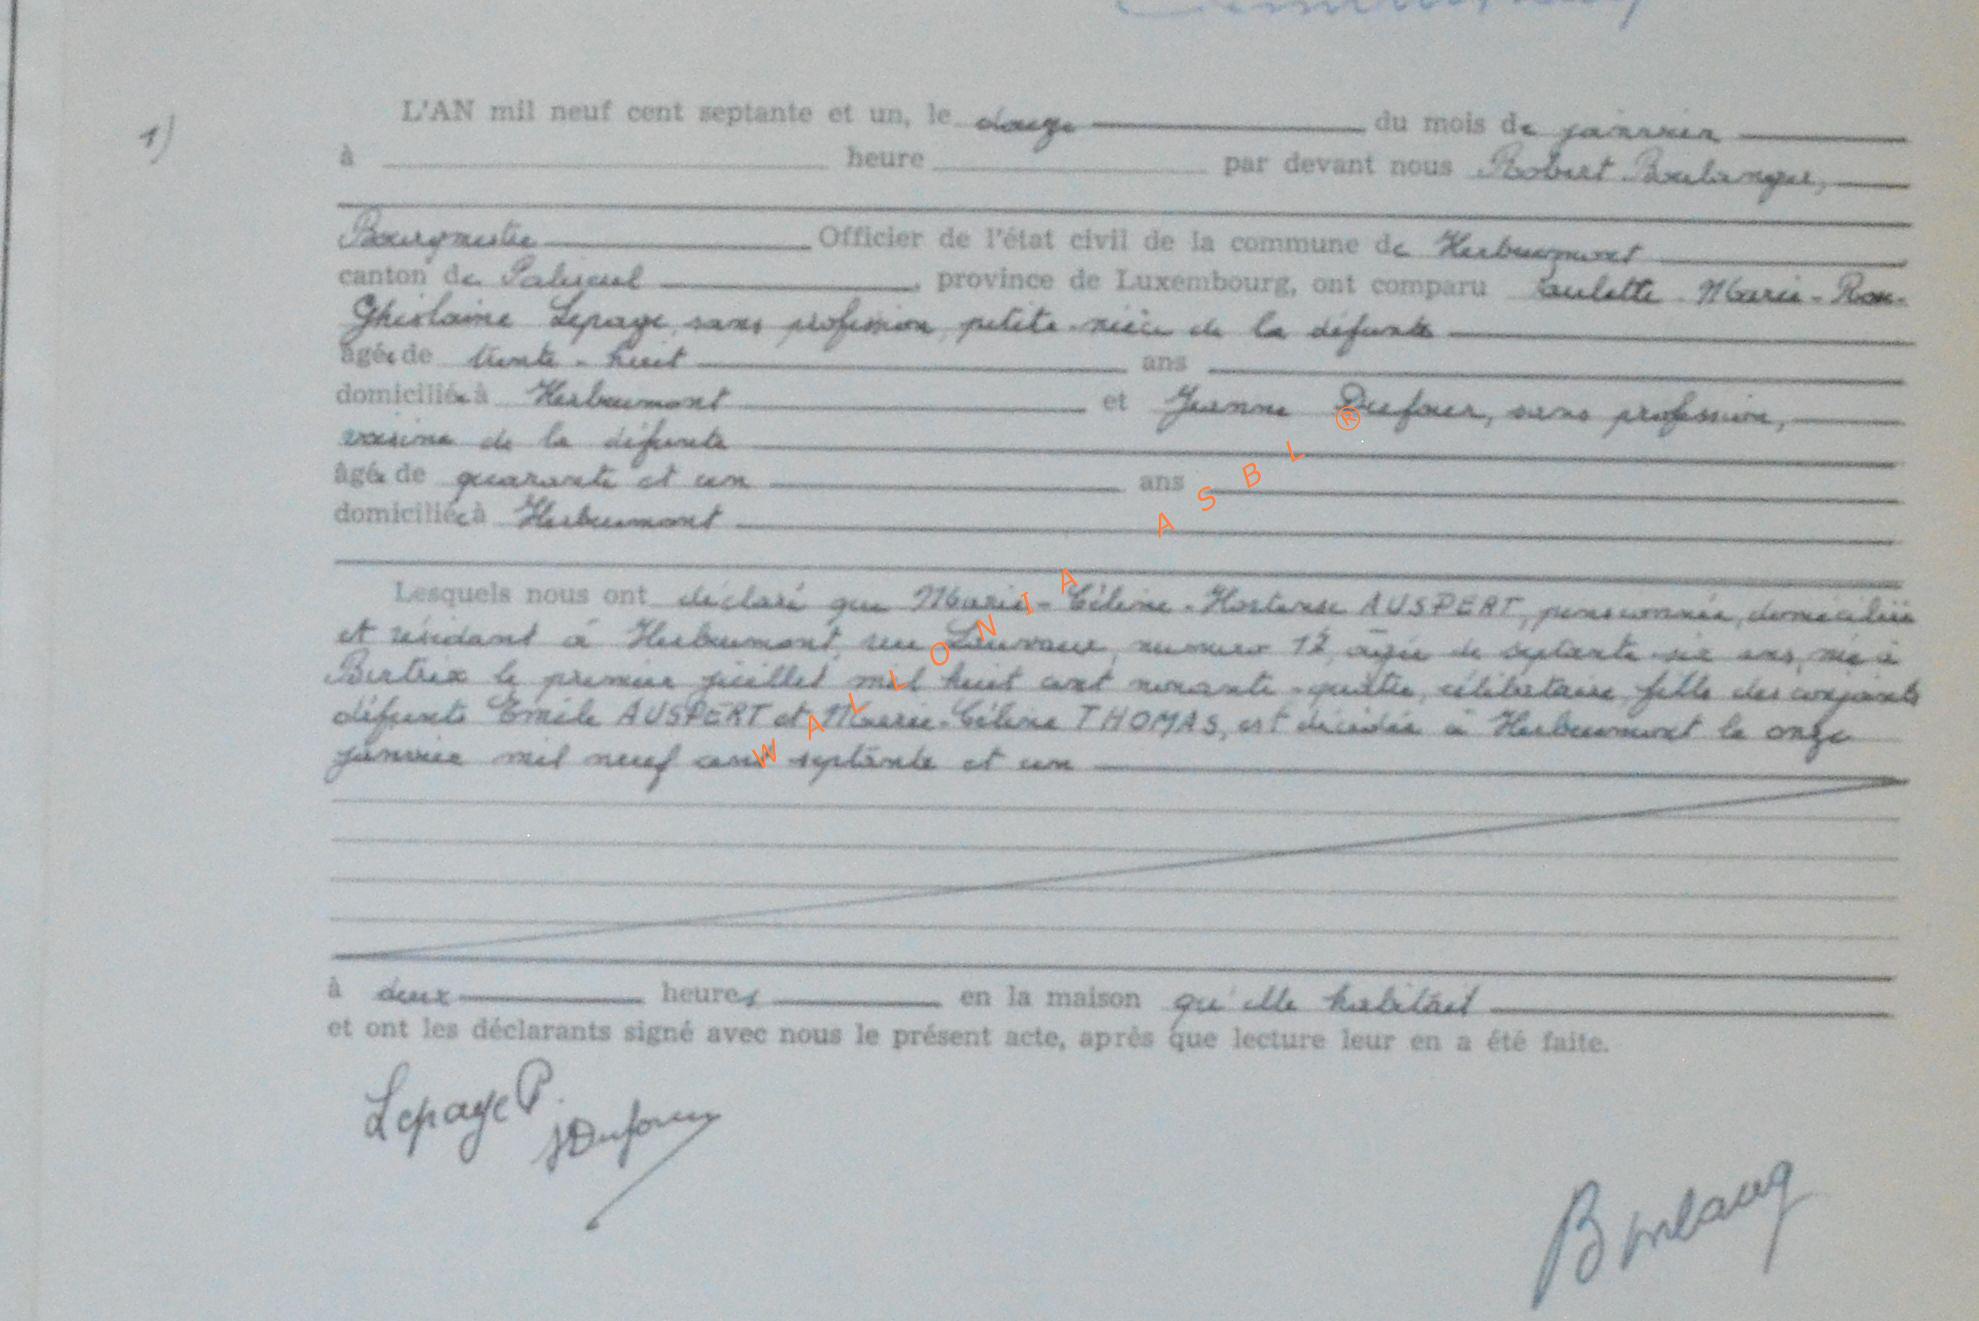 1)
L'AN mil neuf cent septante et un, le douze du mois de janvier
à heure par devant nous Robert Boulanger,
Bourgmestre Officier de l'état civil de la commune de Herbeumont
canton de Paliseul, province de Luxembourg, ont comparu Paulette Marie-Rose-
Ghislaine Lepage, sans profession, petite-nièce de la défunte
âgée de trente-huit ans
domiciliée à Herbeumont et Jeanne Dufour, sans profession,
voisine de la défunte
âgée de quarante et un ans
domiciliée à Herbeumont
Lesquels nous ont déclaré que Marie-Céline-Hortense AUSPERT, pensionnée, domiciliée
et résidant à Herbeumont, rue numéro 12, âgée de septante-six ans, née à
Bertrix le premier juillet mil huit cent nonante-quatre, célibataire, fille des conjoints
défunts Emile AUSPERT et Marie-Céline THOMAS, est décédée à Herbeumont le onze
janvier mil neuf cent septante et un
à deux heures en la maison qu'elle habitait
et ont les déclarants signé avec nous le présent acte, après que lecture leur en a été faite.
Lepage P.
JDufour
WALLONIA ASBL ®